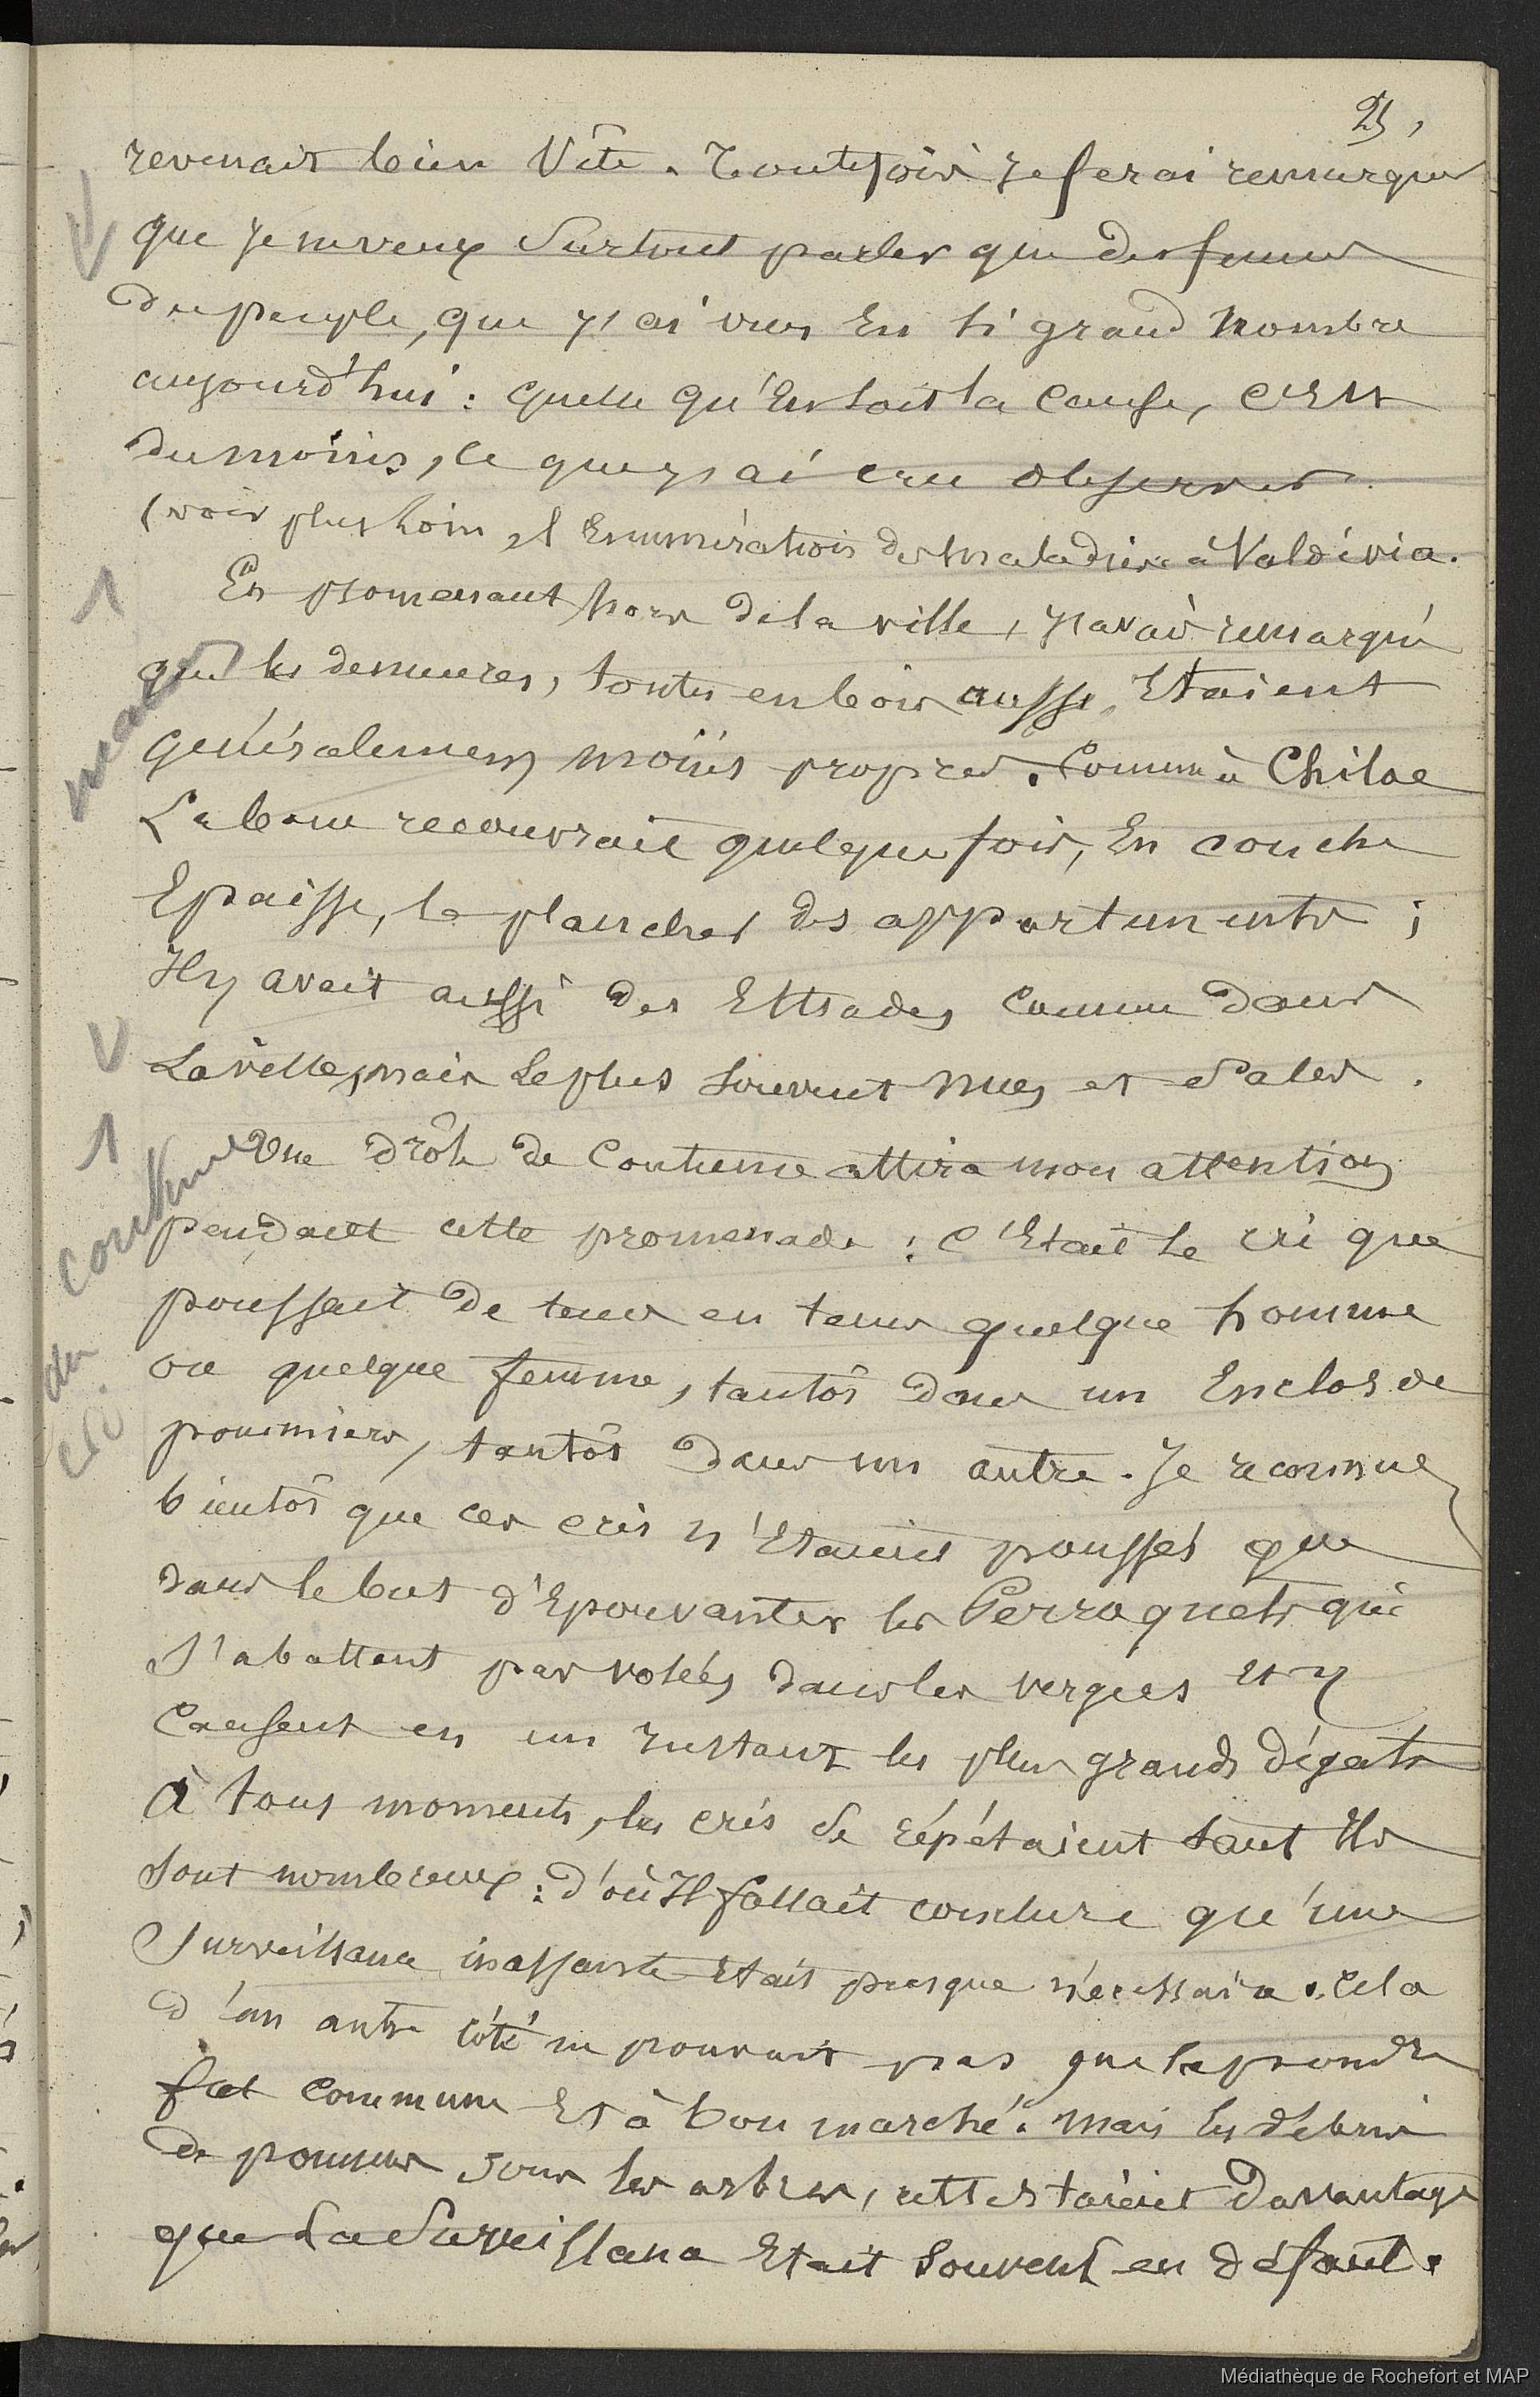 25,
revenait bien Vite. Toutefois je ferai remarquer
que je ne veux Surtout parler que des femmes
du peuple, que j'ai vues En si grand Nombre
aujourd'hui : quelle qu'En soit la Cause, C'Est
du moins, ce que j'ai cru observer.
(voir plus loin, l'Enumération des maladies à Valdivia.
En promenant hors de la ville, j'avais remarqué
que les demeures, toutes en bois aussi, Etaient
généralement moins propres. Comme à Chiloe
La boue recouvrait quelque fois, En couche
Epaisse, le plancher des appartements ;
Il y avait aussi des Estrades comme dans
La ville, mais Le plus souvent nues et Sales.
Une drôle de Coutume attira mon attention
pendant cette promenade : C'Etait le cri que
poussait de tems en tems quelque homme
ou quelque femme, tantôt dans un Enclos de
pommiers, tantôt dans un autre. Je reconnus
bientôt que ces cris n'Etaient poussés que
dans le but d'Epouvanter les Perroquets qui
S'abattent par volées dans les vergers Et y
Causent en un Instant les plus grands dégats
à tous moments, les cris se répétaient tant Ils
sont nombreux : d'où Il fallait conclure qu'une
Surveillance incessante Etait presque nécessaire. Cela
d'un autre côté ne pouvait pas que la pomme
fut commune Et à bon marché. Mais les débris
de pommes sous les arbres, attestaient davantage
que La Surveillance Etait souvent en défaut.
coutume
du
cri